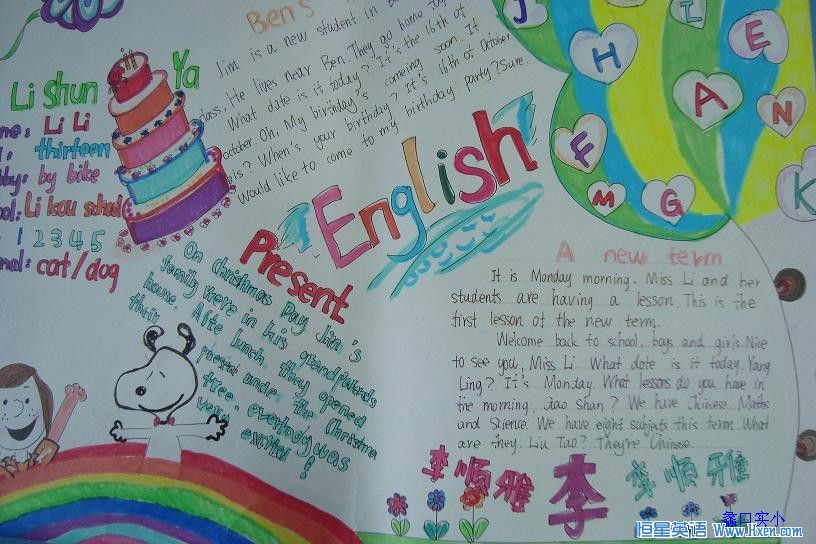 Ben's
Jim is a new student in
He lives near Ben. They go home
What date is it today? It's the 16th of
October. Oh, My birthday's comeing soon. It
is? When's your birthday? It's 16th of October.
Would like to come to my birthday party? Sure.
Li Shun Ya
Li Li
thirteen
by bike
Li kou school
1 2 3 4 5
cat/dog
English
J
I
H
E
A
N
F
M
G
K
Present
On Christmas Day Jim's
family were in his grandparents
house. Afte lunch. they opened
their present unde. the Christma
tree. everybody was
very excited!
A new term
It is Monday morning. Miss Li and her
students are having a lesson. This is the
first lesson of the new term.
Welcome back to school, boys and girls. Nice
to see you, Miss Li. What date is it today. Yang
Ling? It's Monday. What lessons do you have in
the morning, Gao Shan? We have Chinese. Maths
and Science. We have eight subjets this term. What
are they. Liu Tao? They're Chinese.
李顺雅 李 李顺雅
蠡口实小
恒星英语 Www.Hxen.com